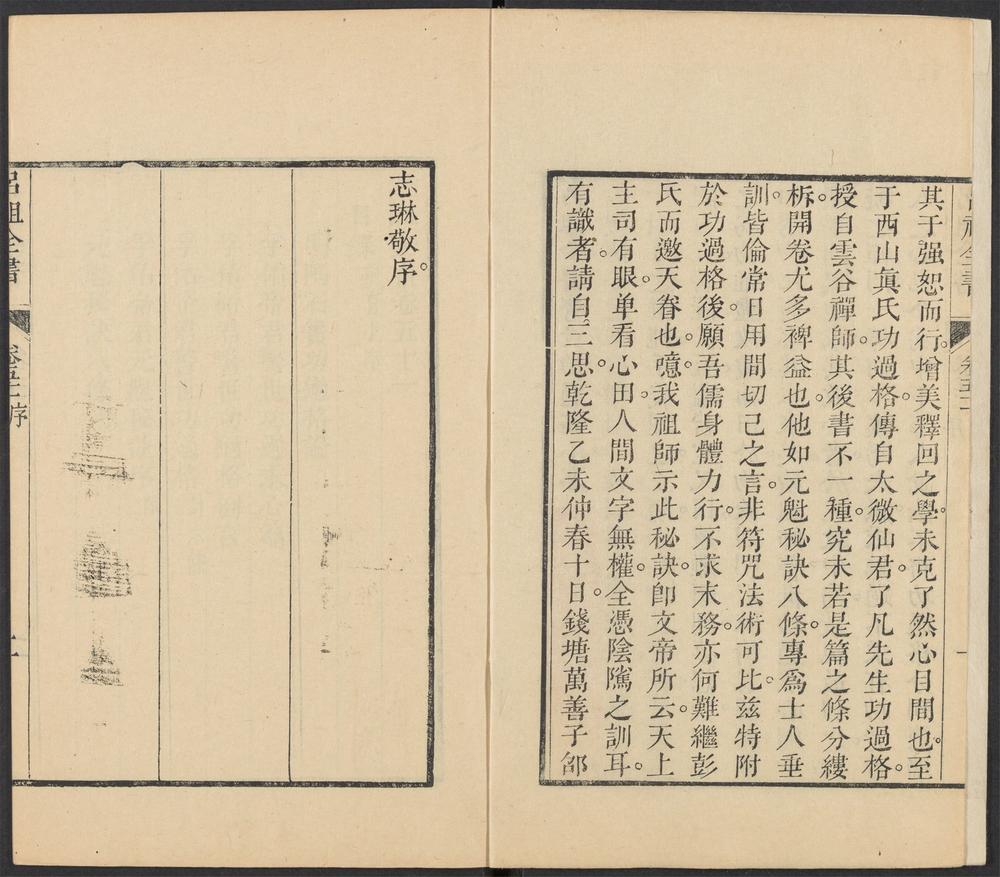 其于强恕而行。增美釋回之學。未克了然心目間也。至
于西山眞氏功過格。傳自太微仙君。了凡先生功過格。
授自雲谷禪師。其後書不一種。究未若是篇之條分縷
柝。開卷尤多裨益也。他如元魁秘訣八條。專爲士人垂
訓。皆倫常日用間切己之言。非符咒法術可比。茲特附
於功過格後。願吾儒身體力行。不求末務。亦何難繼彭
氏而邀天眷也。噫。我祖師示此秘訣。卽文帝所云。天上
主司有眼。单看心田。人間文字無權。全憑陰隲之訓耳。
有識者。請自三思。乾隆乙未仲春十日。錢塘萬善子邵
志琳敬序。
呂祖全書
卷五十一 序